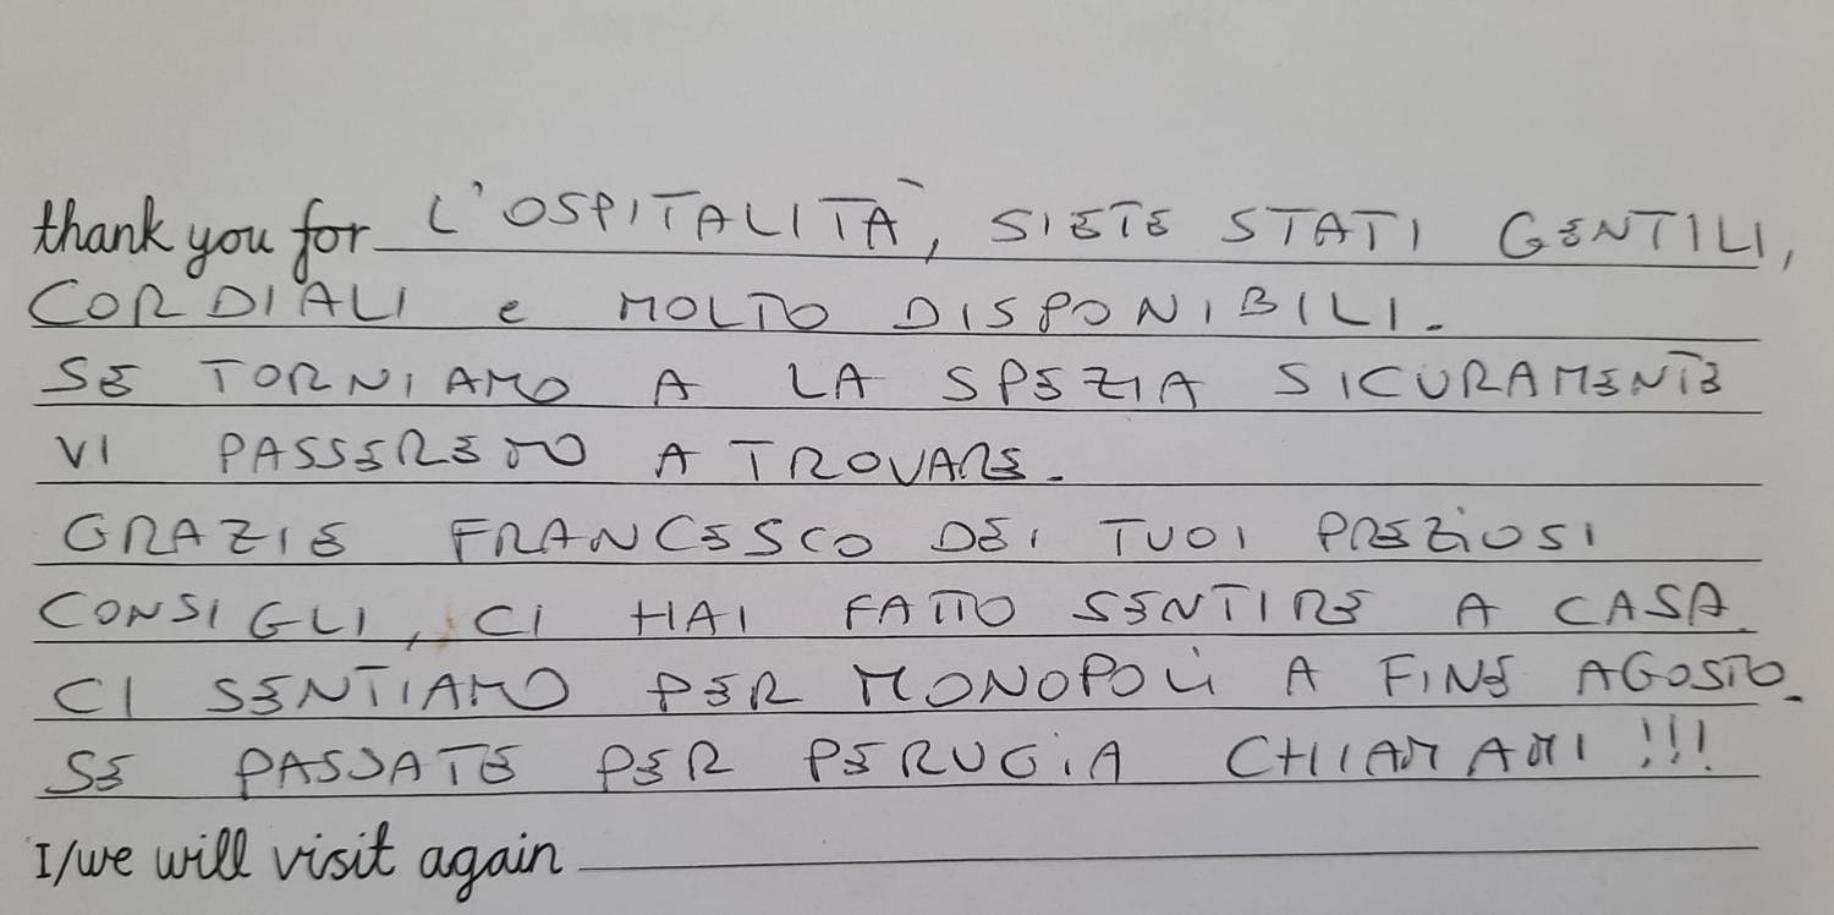 thank you for L'OSPITALITÀ, SIETE STATI GENTILI,
CORDIALI e MOLTO DISPONIBILI.
SE TORNIAMO A LA SPEZIA SICURAMENTE
VI PASSEREMO A TROVARE.
GRAZIE FRANCESCO DEI TUOI PREZIOSI
CONSIGLI, CI HAI FATTO SENTIRE A CASA.
CI SENTIAMO PER MONOPOLI A FINE AGOSTO.
SE PASSATE PER PERUGIA CHIAMAMI !!!
I/we will visit again